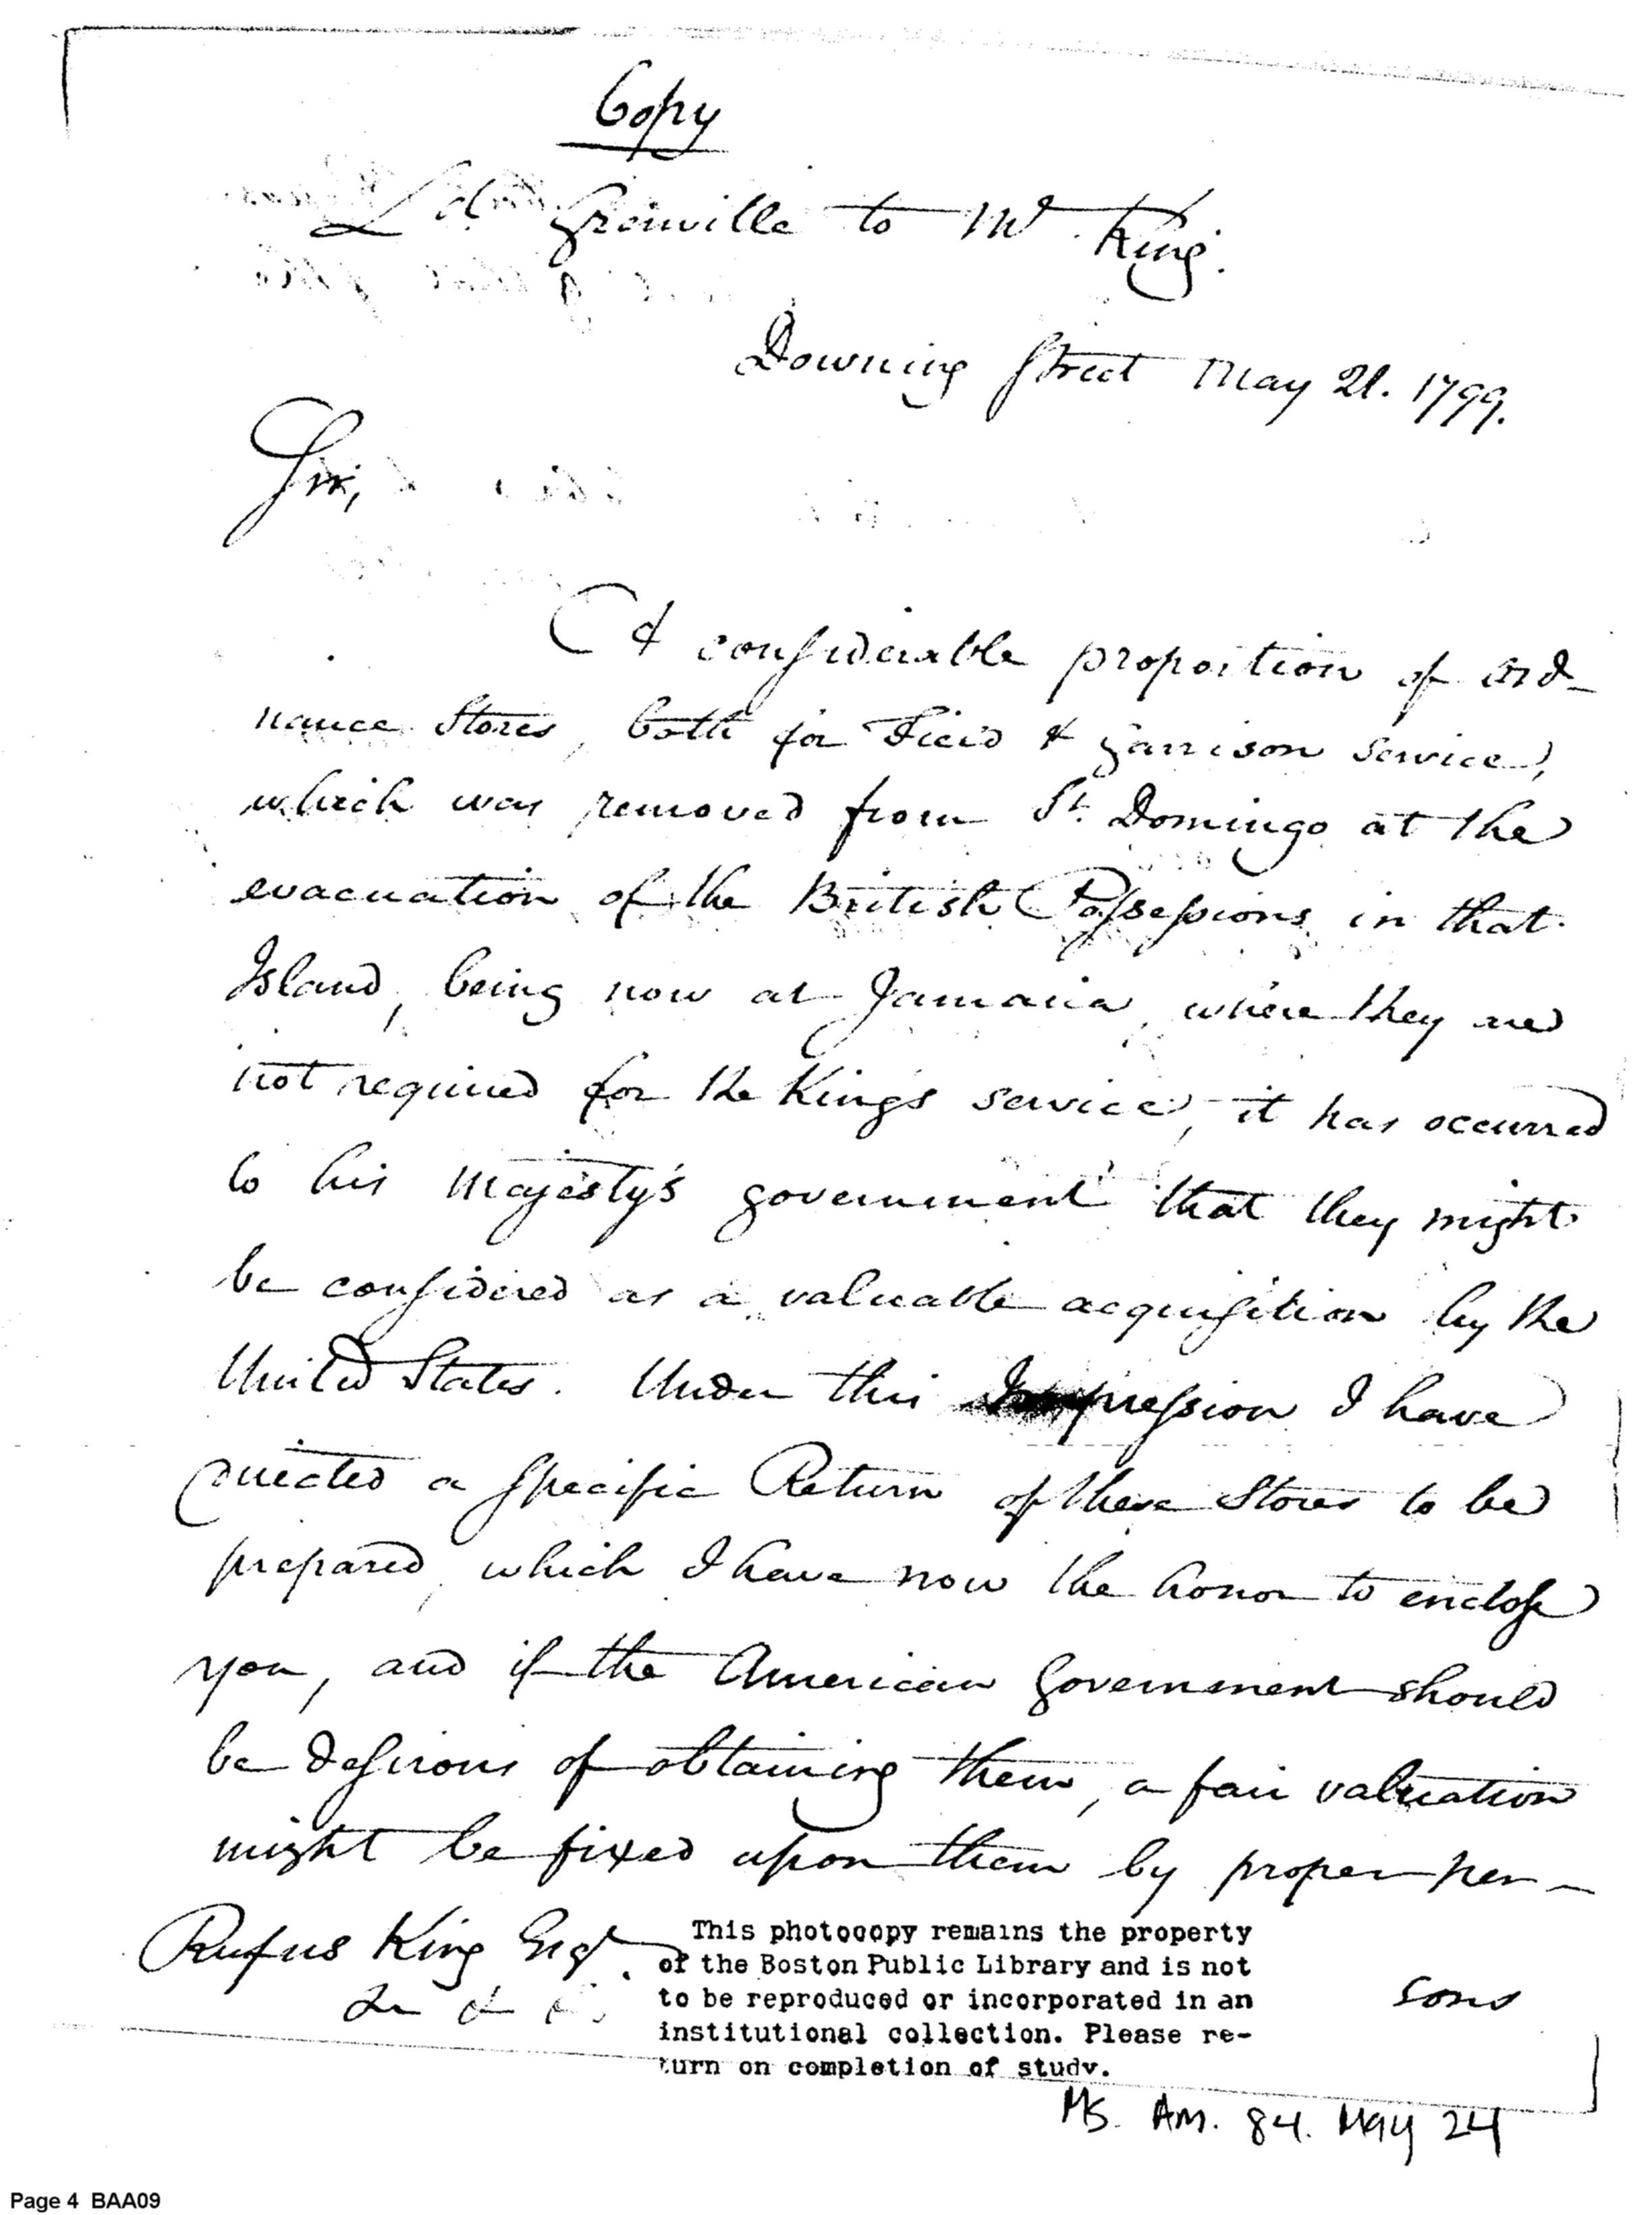 Copy
Ld. Grenville to Mr. King.
Downing Street May 21. 1799.
Sir,
A considerable proportion of ord-
nance Stores, both for Field & Garrison service,
which was removed from St. Domingo at the
evacuation of the British Possessions in that
Island, being now at Jamaica, where they are
not required for the King's service, it has occurred
to his Majesty's government that they might
be considered as a valuable acquisition by the
United States. Under this Impression I have
directed a Specific Return of these Stores to be
prepared, which I have now the honor to enclose
you, and if the American Government should
be desirous of obtaining them, a fair valuation
might be fixed upon them by proper per-
Rufus King Esqr.
sons
This photocopy remains the property
of the Boston Public Library and is not
to be reproduced or incorporated in an
institutional collection. Please re-
turn on completion of study.
Ms. Am. 84. May 24
Page 4 BAA09